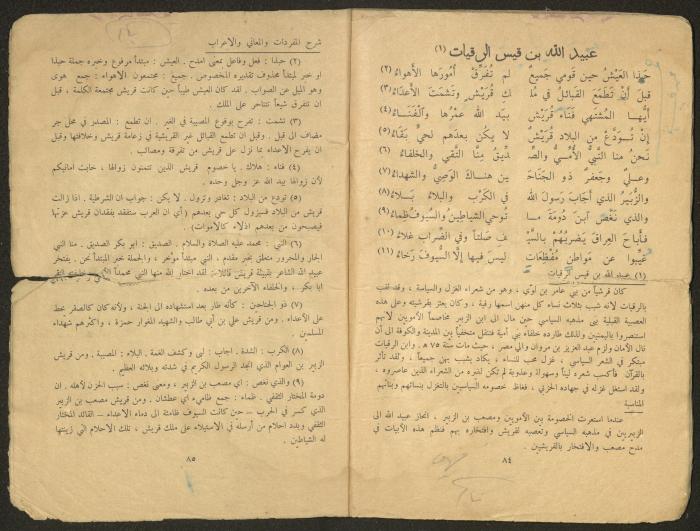 عبيد الله بن قيس الرقيات (١)
حبذا العَيْشُ حين قومي جميعٌ لم تُفَرِّقْ أُمورَها الأهواءُ (٢)
قبلَ أَنْ تَطمَعَ القبائلُ في مُلْ كِ قُرَيْشٍ وتَشْمَتَ الأَعْدَاءُ (٣)
أيُّهَا المُشتَهِي فَنَاءَ قُرَيْشٍ بِيَدِ اللهِ عُمْرُها وَالْفَنَاءُ (٤)
إنْ تُوَدِّعْ من البلادِ قُرَيْشٌ لا يَكن بعدَهم لحيٍّ بَقَاءُ (٥)
نحنُ مِنا النَّبيُّ الأُمِّيُّ والصِّ دِّيقُ مِنَّا التَّقِي والخلفاءُ (٦)
وعَليٌّ وجعفرٌ ذو الجَنَاحَ ين هناكَ الوَصِيُّ والشهداءُ (٧)
والزُّبَيرُ الذي أَجَابَ رسولَ اللهِ في الكَرْبِ والبلاءُ بَلاءُ (٨)
والذي نَغَّصَ ابنَ دُومَةَ ما تُوحي الشياطينُ والسُّيوفُ ظِماءُ (٩)
فأَباحَ العِراقَ يَضرِبُهُمْ بالسَّيْ فِ صَلتاً وفي الضِّرابِ غلاءُ (١٠)
غُيِّبوا عن مَواطنٍ مُفْظِعَاتٍ ليسَ فيها إلَّا السُّيوفَ رَخَاءُ (١١)
(١) عبيد الله بن قيس الرقيات
كان قرشياً من بني عامر بن لؤي ، وهو من شعراء الغزل والسياسة ، وقد لقب
بالرقيات لأنه شبب بثلاث نساء كل منهن اسمها رقية ، وكان يعتز بقرشيته وعلى هذه
العصبية القبلية بنى مذهبه السياسي حين مال الى ابن الزبير مخاصماً الأمويين لأنهم
استنصروا باليمنيين ولذلك طارده خلفاء بني أمية فتنقل متخفياً بين المدينة والكوفة الى أن
نال الأمان ولزم عبد العزيز بن مروان والي مصر ، حيث مات سنة ٧٥ هـ . وابن الرقيات
مبتكر في الشعر السياسي ، غزل محب للنساء ، يكاد يشبب بهن جميعاً ، ولقد تأثر
بالقرآن فأكسب شعره ليناً وسهولة وعذوبة لم تكن لغيره من الشعراء الذين عاصروه ،
ولقد استغل غزله في جهاده الحزبي ، فغاظ خصومه السياسيين بالتغزل بنسائهم وبناتهم
المناسبة
عندما استعرت الخصومة بين الأمويين ومصعب بن الزبير ، انحاز عبيد الله الى
الزبيريين في مذهبه السياسي وتعصبه لقريش وافتخاره بهم فنظم هذه الأبيات في
مدح مصعب والافتخار بالقرشيين .
٨٤
شرح المفردات والمعاني والاعراب
(٢) حبذا : فعل وفاعل بمعنى امدح . العيش : مبتدأ مرفوع وخبره جملة حبذا
او خبر لمبتدأ محذوف تقديره المخصوص . جميع : مجتمعون الاهواء : جمع هوى
وهو الميل عن الصواب . لقد كان العيش طيباً حين كانت قريش مجتمعة الكلمة ، قبل
ان تتفرق شيعاً تتناحر على الملك .
(٣) تشمت : تفرح بوقوع المصيبة في الغير . ان تطمع : المصدر في محل جر
مضاف الى قبل . وقبل ان تطمع القبائل غير القرشية في زعامة قريش وخلافتها وقبل
ان يفرح الاعداء بما نزل على قريش من تفرقة ومصائب .
(٤) فناء : هلاك . يا خصوم قريش الذين تتمنون زوالها ، خابت امانيكم
لأن زوالها بيد الله عز وجل وحده .
(٥) تودع من البلاد : تغادر وتزول . لا يكن : جواب ان الشرطية . اذا زالت
قريش من البلاد فسيزول كل حي بعدهم ( أي ان العرب ستفقد بفقدان قريش عزتها
فيصبحون من بعدهم اذلاء كالاموات) .
(٦) النبي : محمد عليه الصلاة والسلام . الصديق : ابو بكر الصديق . منا النبي
الجار والمجرور متعلق بخبر مقدم ، النبي مبتدأ مؤخر ، والجملة خبر المبتدأ نحن . يفتخر
عبيد الله الشاعر بقبيلته قريش قائلا: لقد اختار الله منها النبي محمداً
ابا بكر . . والخلفاء الآخرين من بعده .
(٧) ذو الجناحين : كأنه طار بعد استشهاده الى الجنة ، ولأنه كان كالصقر يحط
على الأعداء . ومن قريش علي بن أبي طالب والشهيد المغوار حمزة ، واكثرهم شهداء
المسلمين .
(٨) الكرب : الشدة . اجاب : لبى وكشف الغمة . البلاء : المصيبة . ومن قريش
الزبير بن العوام الذي انجد الرسول الكريم في شدته وبلائه العظيم .
(٩) والذي نغص : اي مصعب بن الزبير ، ومعنى نغص : سبب الحزن لأهله . ابن
دومة المختار الثقفي . ظماء : جمع ظامىء اي عطشان . ومن قريش مصعب بن الزبير
الذي كسر في الحرب – حين كانت السيوف ظامئة الى دماء الاعداء – القائد المختار
الثقفي وبدد احلام من أرسله في الاستيلاء على ملك قريش ، تلك الاحلام التي زينتها
له الشياطين .
٨٥